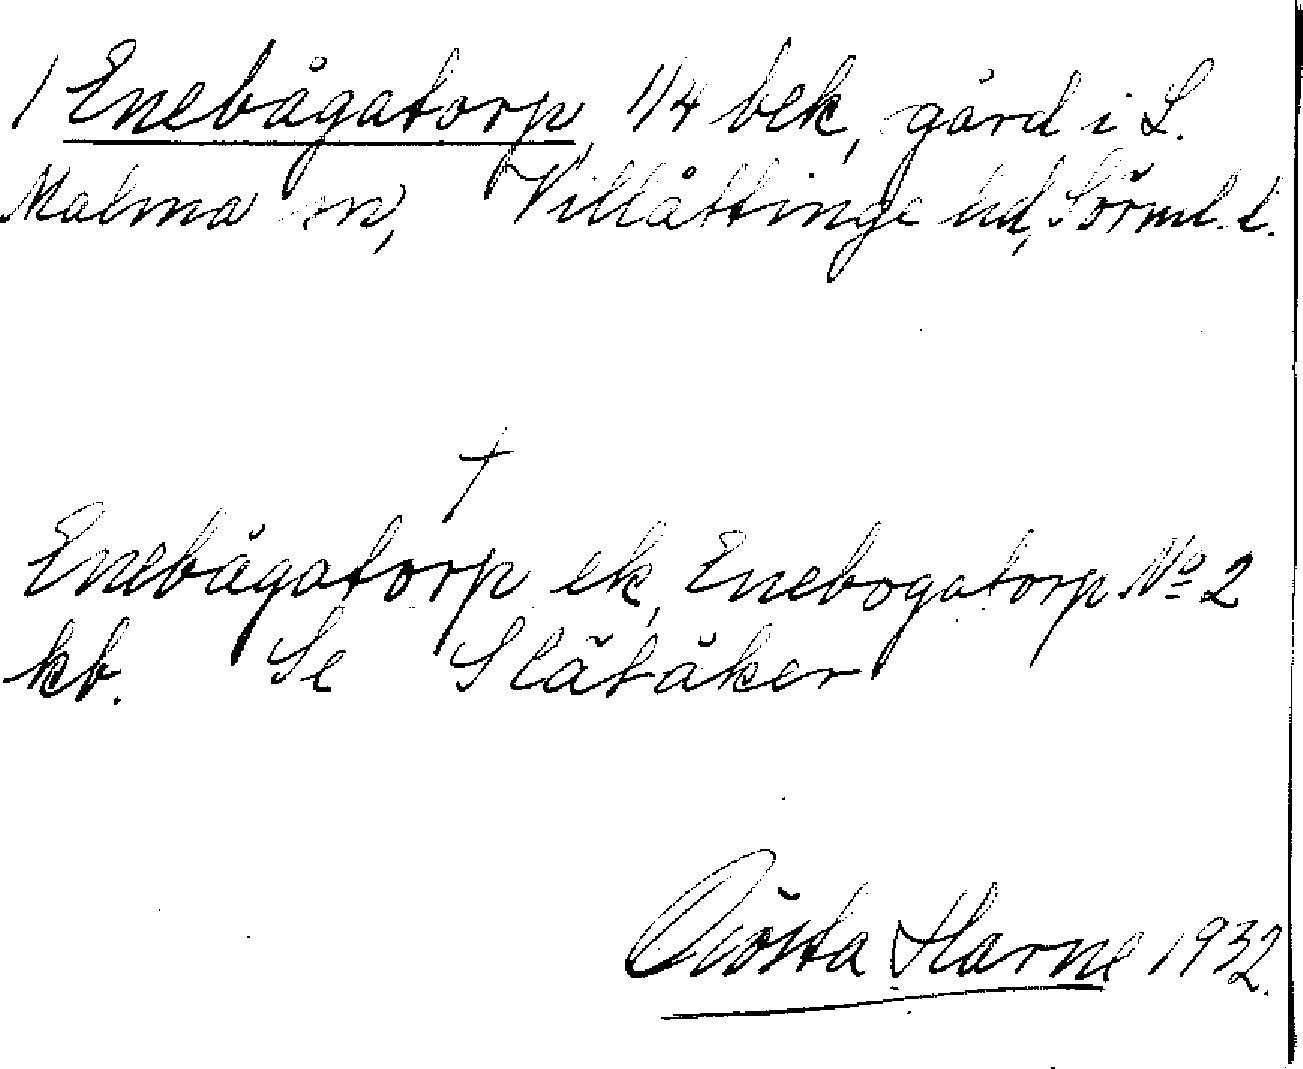 1 Enebågatorp, 1/4 bek, gård i L.
Malma sn, Villåttinge hd, Sörml. l.
†
Enebågatorp ek, Enebogatorp No 2
kb. Se Slätåker
Gösta Harne 1932.